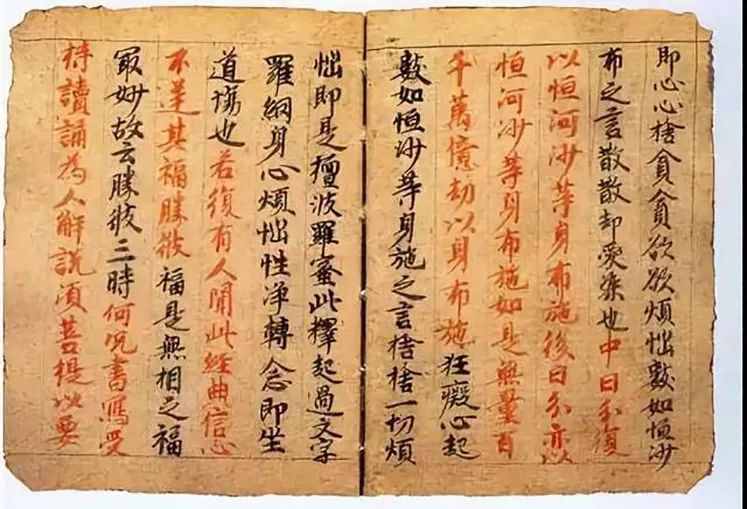 即心心捨貪貪欲欲煩惱數如恒沙
布之言散散却愛集也中日分復
以恒河沙等身布施後日分亦以
恒河沙等身布施如是無量百
千萬億劫以身布施狂癡心起
數如恒沙等身施之言捨捨一切煩
惱即是檀波羅蜜此釋起過文字
羅網身心煩惱性净轉念即坐
道場也若復有人聞此經典信心
不逆其福勝彼福是無相之福
冣妙故云勝彼三時何況書寫受
持讀誦為人解說須菩提以要